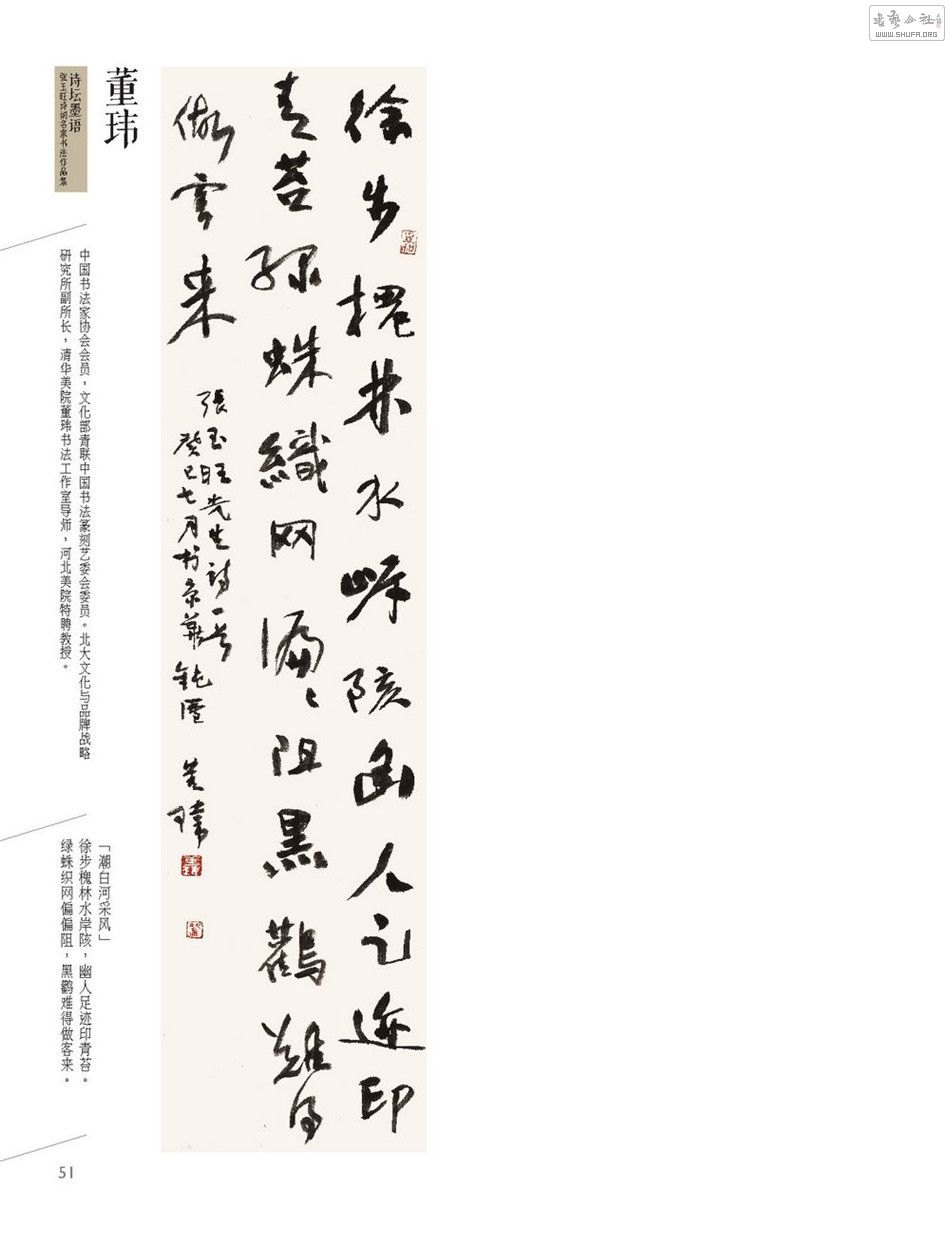 書藝公社
WWW.SHUFA.ORG
董玮
诗坛墨语
张玉旺诗词名家书法作品集
中国书法家协会会员，文化部青联中国书法篆刻艺委会委员。北大文化与品牌战略
研究所副所长，清华美院董玮书法工作室导师，河北美院特聘教授。
徐步槐林水岸陔幽人足迹印
青苔绿蛛織网偏〻阻黑鸛難得
做客来
張玉旺先生詩一首
癸巳七月於京華鈍廛 董瑋
「潮白河采风」
徐步槐林水岸陔，幽人足迹印青苔。
绿蛛织网偏偏阻，黑鹳难得做客来。
51